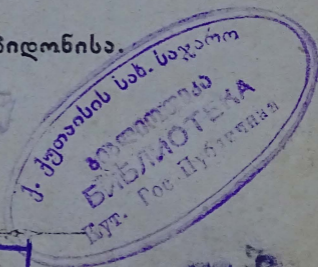 ნიდონისა.
ქ. ქუთაისის სახ. საჯარო
ბიბლიოთეკა
БИБЛИОТЕКА
Кут. Гос. Публичная